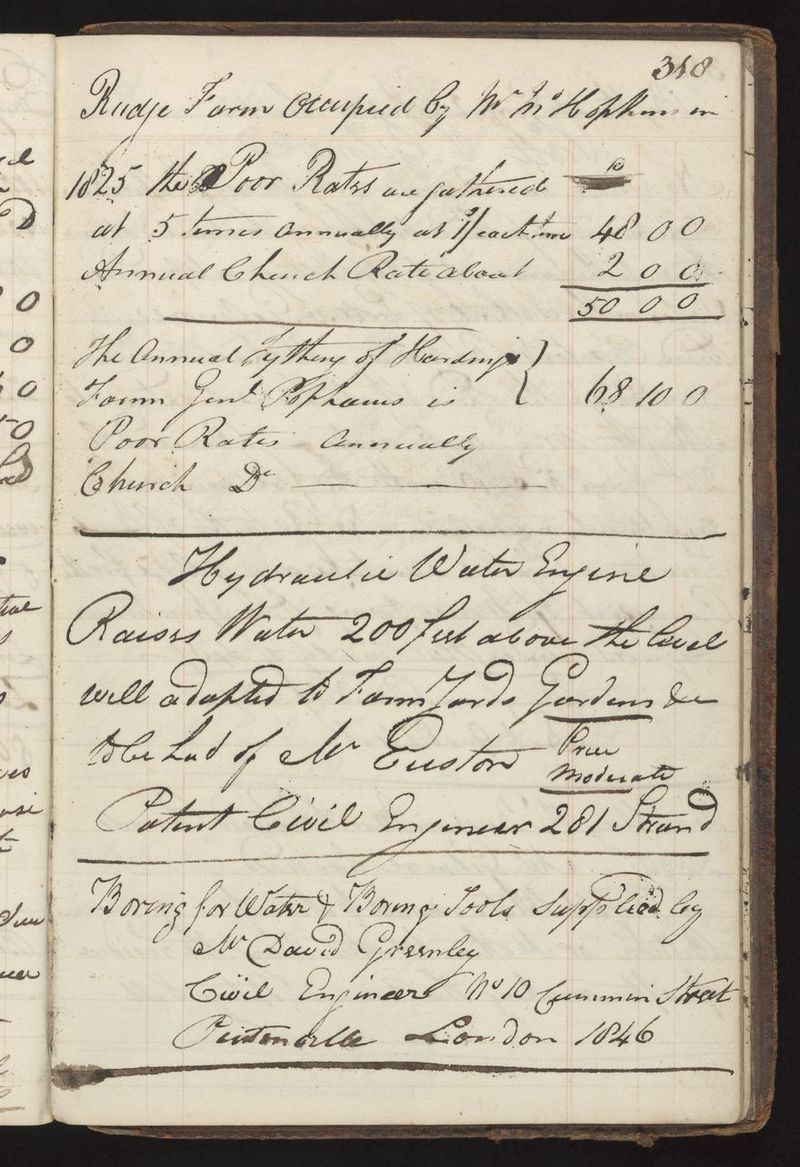 318
Rudge Farm Occupied by Mr Hopkins in
1825 the Poor Rates are gathered
at 5 times annually at 1/ each time 48 0 0
Annual Church Rate about 2 0 0
50 0 0
The Annual Tythery of Hardings
Farm Genl Pophams is 68 10 0
Poor Rates Annually
Church Do
Hydraulic Water Engine
Raises Water 200 feet above the level
well adapted to Farm Yards Gardens &c
to be had of Mr Euston Price
Moderate
Patent Civil Engineer 281 Strand
Boring for Water & Boring Tools supplied by
Mr David Greenley
Civil Engineer No 10 Cummin Street
Pentonville London 1846